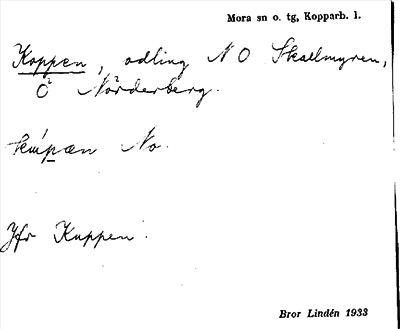 Mora sn o. tg, Kopparb. l.
Koppen, odling N O Skallmyren,
Ö Nörderberg.
No.
Jfr Kuppen.
Bror Lindén 1933